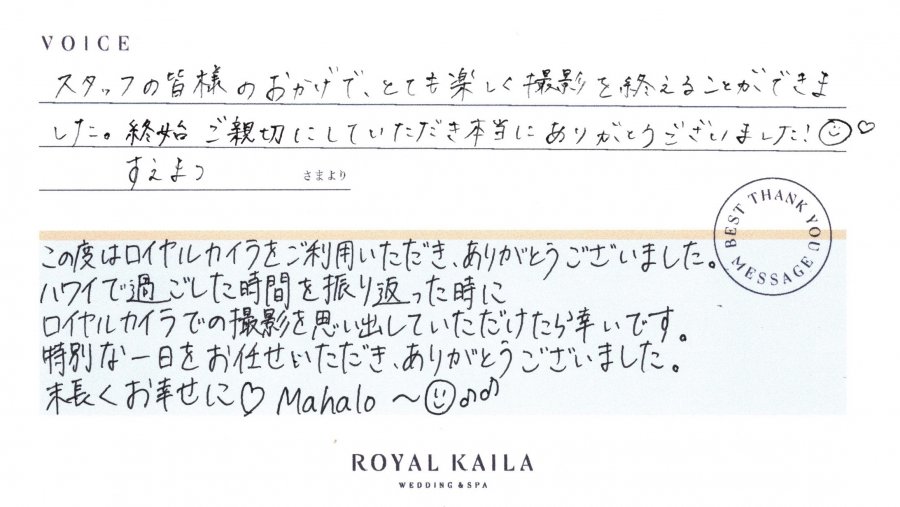 VOICE
スタッフの皆様のおかげで、とても楽しく撮影を終えることができま
した。終始 ご親切にしていただき本当にありがとうございました!
すえまつ さまより
BEST THANK YOU MESSAGE
この度はロイヤルカイラをご利用いただき、ありがとうございました。
ハワイで過ごした時間を振り返った時に
ロイヤルカイラでの撮影を思い出していただけたら幸いです。
特別な一日をお任せいただき、ありがとうございました。
末長くお幸せに♡ Mahalo ~
ROYAL KAILA
WEDDING & SPA